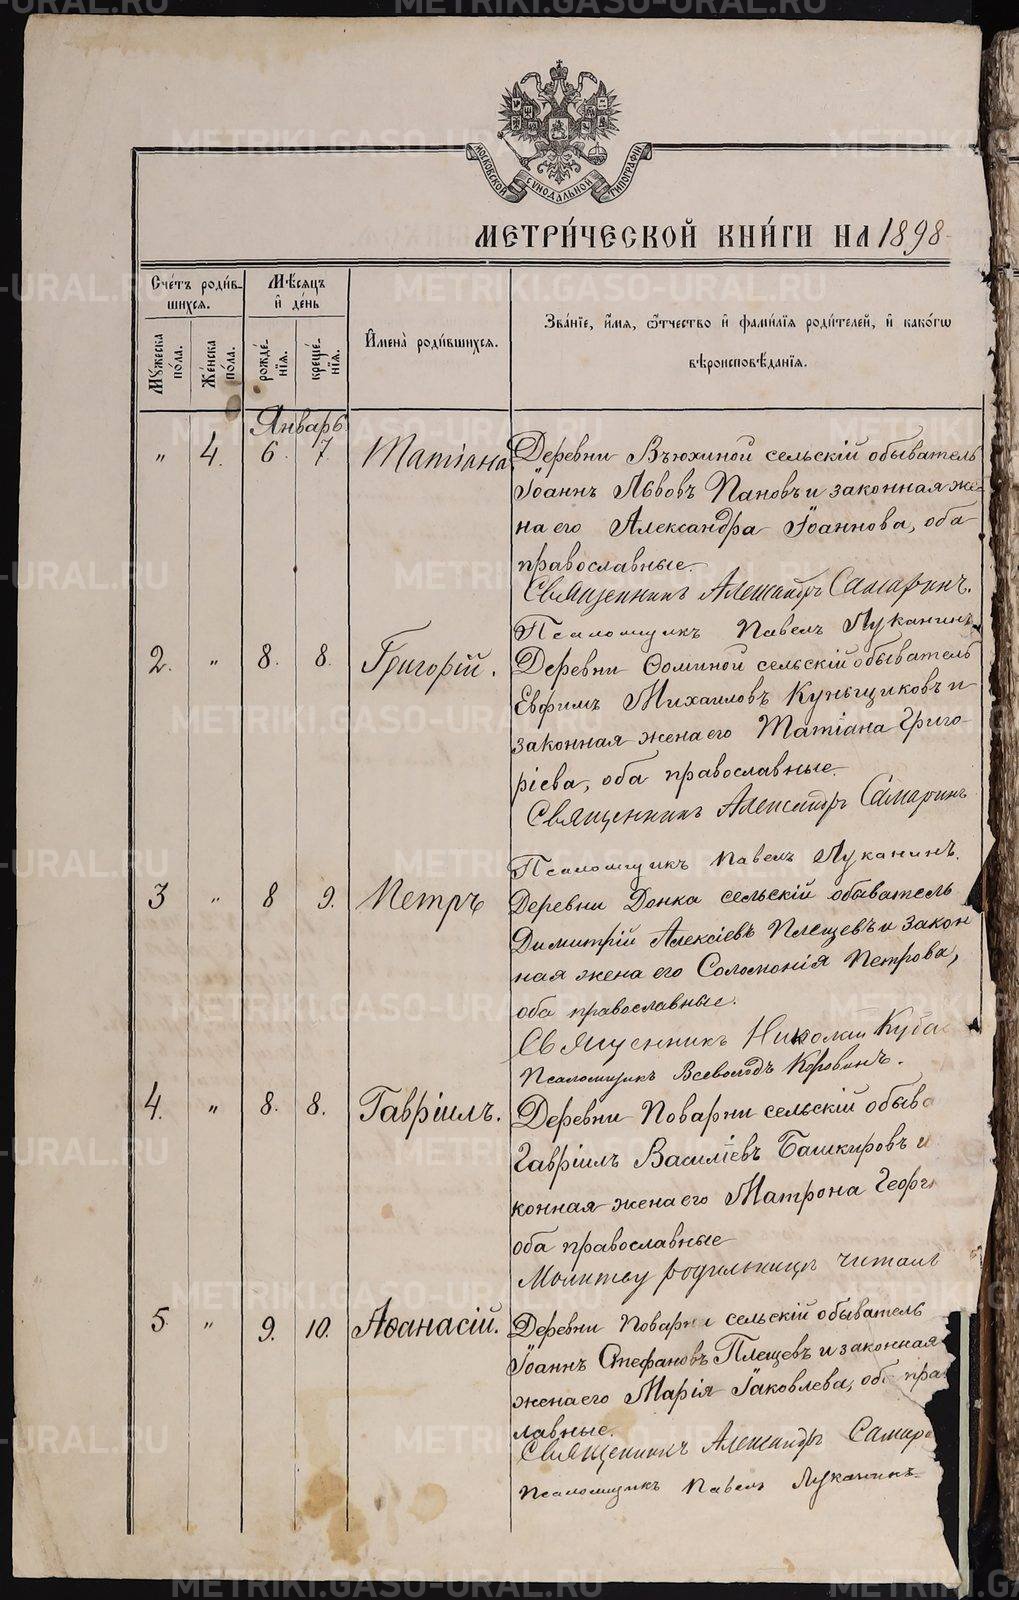 МОСКОВСКОЙ СѴНОДАЛЬНОЙ ТИПОГРАФІИ
МЕТРИ́ЧЕСКОЙ КНИ́ГИ НА 1898
Сче́тъ роди́в-
шихся.
Мѣ́сяцъ
и҆ де́нь
Мꙋ́жеска
по́ла.
Же́нска
по́ла.
рожде́-
нїѧ.
креще́-
нїѧ.
И҆мена̀ роди́вшихся.
Зва́нїе, и҆́мя, ѻ҆́тчество и҆ фами́лїя роди́телей, и҆ како́гѡ
вѣроисповѣ́данїя.
Январь
„ 4. 6. 7. Татіана
Деревни Вьюхиной сельскій обыватель
Іоаннъ Львовъ Пановъ и законная же-
на его Александра Іоаннова, оба
православные.
Священникъ Александръ Самаринъ.
Псаломщикъ Павелъ Луканинъ.
2. „ 8. 8. Григорій.
Деревни Ѳоминой сельскій обыватель
Евфимъ Михаиловъ Куньщиковъ и
законная жена его Татіана Григо-
ріева, оба православные.
Священникъ Александръ Самаринъ
Псаломщикъ Павелъ Луканинъ.
3 „ 8 9. Петръ
Деревни Донка сельскій обыватель
Димитрій Алексіевъ Плещевъ и закон
ная жена его Соломонія Петрова,
оба православные.
Священникъ Николай
Псаломщикъ Всеволодъ Коровинъ.
4. „ 8. 8. Гавріилъ.
Деревни Поварни сельскій обыва
Гавріилъ Василіевъ Башкировъ и
конная жена его Матрона Георг
оба православные
Молитву родильницы читалъ
5 „ 9. 10. Аѳанасій.
Деревни Поварни сельскій обыватель
Іоаннъ Стефановъ Плещевъ и законная
жена его Марія Іаковлева, оба пра
лавные.
Священникъ Александръ Самар
Псаломщикъ Павелъ Луканинъ.
METRIKI.GASO-URAL.RU